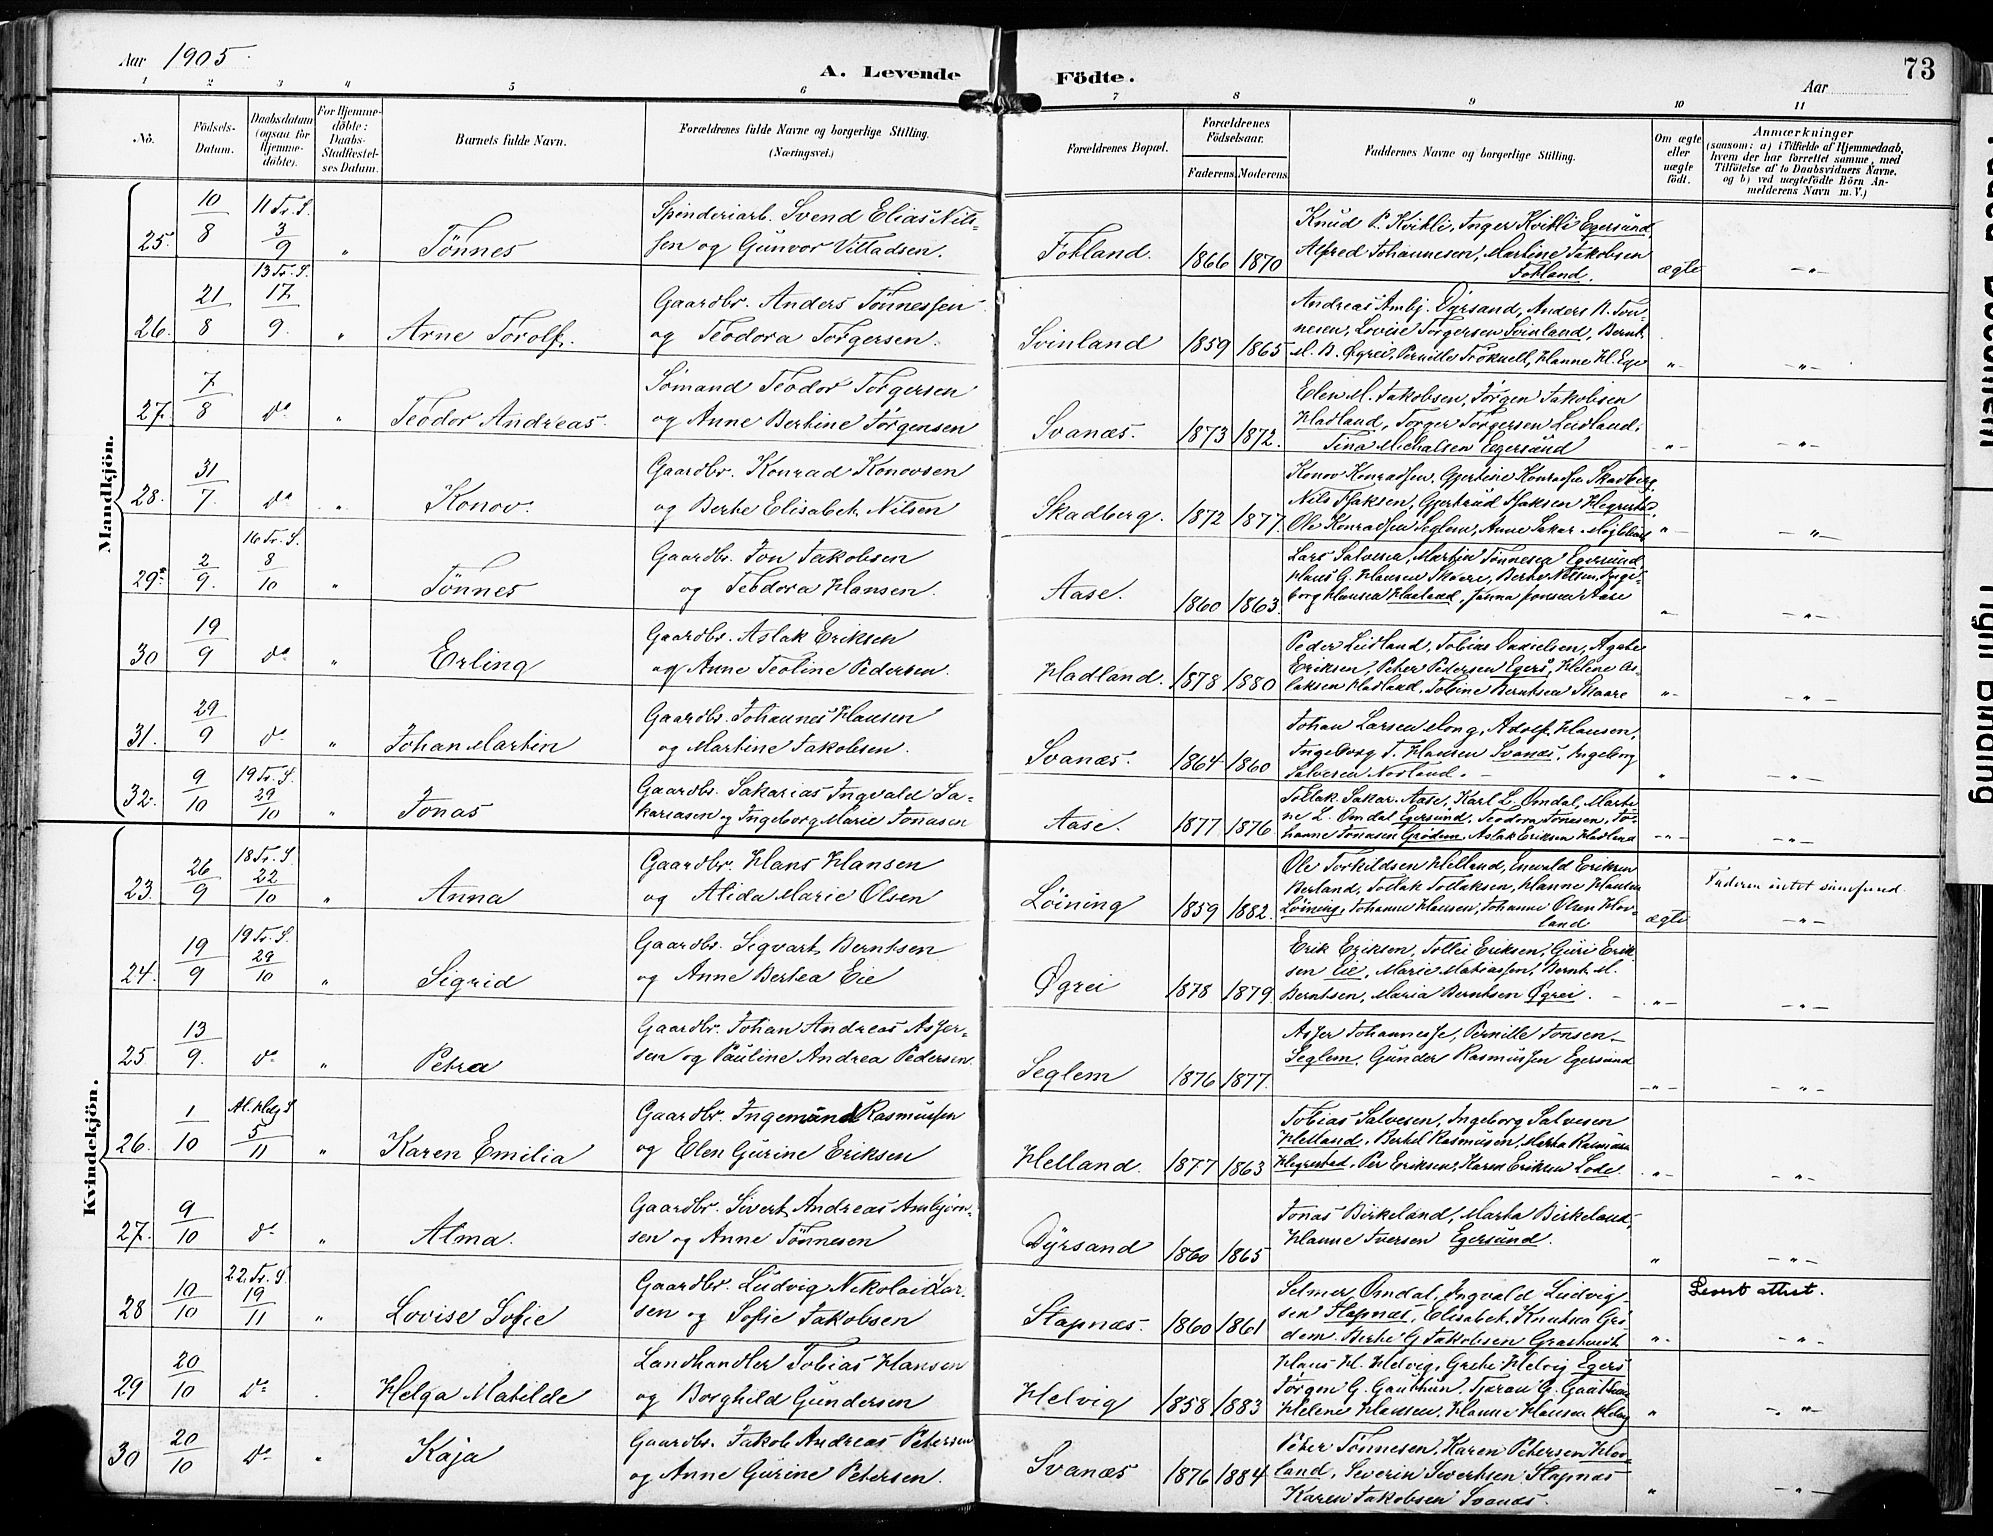 Aar 1905.
A. Levende Födte.
73
Aar
1 2 3 4 5 6 7 8 9 10 11
No.
Födsels-
Datum.
Daabsdatum
(ogsaa for
Hjemme-
döbte).
For Hjemme-
döbte:
Daabs-
Stadfæstel-
ses Datum.
Barnets fulde Navn.
Forældrenes fulde Navne og borgerlige Stilling.
(Næringsvei.)
Forældrenes Bopæl.
Forældrenes
Födselsaar.
Faderens. Moderens.
Faddernes Navne og borgerlige Stilling.
Om ægte
eller
uægte
födt.
Anmærkninger
(saasom: a) i Tilfælde af Hjemmedaab,
hvem der har forrettet samme, med
Tilföielse af to Daabsvidners Navne,
og b) ved uægtefödte Börn An-
melderens Navn m. V.)
Mandkjön.
25. 10/8 11 Tr. S. 3/9 " Tönnes
Spinderiarb. Svend Elias Nils-
sen og Gunvor Vitladsen.
Fotland. 1866 1870
Knud P. Kvikli, Inger Kvikli Egersund,
Alfred Johannesen, Martine Jakobsen
Fotland. ægte -"-
26. 21/8 13 Tr. S. 17/9. " Arne Torolf.
Gaardbr. Anders Tönnessen
og Teodora Torgersen.
Svinland 1859 1865
Andreas Ambj. Dyrsand, Anders N. Tön-
nesen, Lovise Torgersen Svinland, Bernt
M. B. Øgrei, Pernille Hanne H. Ege "- -"-
27. 7/8 do " Teodor Andreas.
Sömand Teodor Torgersen
og Anne Bertine Jörgensen
Svanæs. 1873 1872.
Elen M. Jakobsen, Jörgen Jakobsen
Hadland, Torger Torgersen Leidland,
Tina Michalsen Egersund "- -"-
28. 31/7. do " Konov.
Gaardbr. Konrad Konovsen
og Berte Elisabet Nilsen
Skadberg. 1872 1877.
Konov Konradsen, Gjertine Konradsen Skadberg,
Nils Isaksen, Gjertrud Isaksen Hegrestad,
Ole Konradsen Seglem, Anne Sakar. "- -"-
29. 2/9. 16 Tr. S. 8/10 " Tönnes
Gaardbr. Jon Jakobsen
og Teodora Hansen.
Aase. 1860 1863.
Lars Salvesen, Martin Tönnesen Egersund,
Hans G. Hansen Skaare, Berte Nilsen, Inge-
borg Hansen Hadland, Janna Jonsen Aase "- -"-
30 19/9 do " Erling
Gaardbr. Aslak Eriksen
og Anne Teoline Pedersen.
Hadland. 1878 1880
Peder Leidland, Tobias Danielsen, Agate
Eriksen, Peter Pedersen Egers, Helene As-
laksen Hadland, Tobine Berntsen Skaare "- -"-
31. 29/9 do " Johan Martin
Gaardbr. Johannes Hansen
og Martine Jakobsen.
Svanæs. 1864 1860
Johan Larsen Mong, Adolf Hansen,
Ingeborg T. Hansen Svanæs, Ingeborg
Salvesen Nodland. - " -"-
32. 9/10 19 Tr. S. 29/10 " Jonas
Gaardbr. Sakarias Ingvald Sa-
kariasen og Ingeborg Marie Jonasen
Aase. 1877 1876
Tollak Sakar. Aase, Karl L. Omdal, Marti-
ne L. Omdal Egersund, Teodora Jonesen, Jo-
hanne Jonasen Grödem, Aslak Eriksen Hadland -"- -"-
Kvindekjön.
23. 26/9 18 Tr. S. 22/10 " Anna
Gaardbr. Hans Hansen
og Alida Marie Olsen
Löining 1859 1882.
Ole Torkildsen Helland, Enevald Eriksen
Berland, Tollak Tollaksen, Hanne Hansen
Löining, Johanne Hansen, Johanne Olsen Hov-
land ægte Faderen intet samfund. -"-
24. 19/9 19 Tr. S. 29/10 " Sigrid
Gaardbr. Segvart Berntsen
og Anne Bertea Eie
Øgrei 1878 1879
Erik Eriksen, Tollei Eriksen, Guri Erik-
sen Eie, Marie Matiassen, Bernt M.
Berntsen, Maria Berntsen Øgrei. - -"- -"-
25 13/9. do " Petra
Gaardbr. Johan Andreas Asser-
sen og Pauline Andrea Pedersen.
Seglem 1876 1877.
Asser Johannesse, Pernille Jonsen
Seglem, Gunder Rasmussen Egersund -"- -"-
26. 1/10 Al. Helg. S. 5/11 " Karen Emilia
Gaardbr. Ingemund Rasmussen
og Elen Gurine Eriksen
Helland. 1877 1863
Tobias Salvesen, Ingeborg Salvesen
Helland, Bertel Rasmusen, Marta Rasmusen
Hegrestad, Per Eriksen, Karen Eriksen Lode. "- -"-
27. 9/10 do " Alma.
Gaardbr. Sivert Andreas Ambjörn-
sen og Anne Tönnesen
Dyrsand 1860 1865
Jonas Birkeland, Marta Birkeland,
Hanne Iversen Egersund. " -"-
28 10/10 22. Tr. S. 19/11 " Lovise Sofie
Gaardbr. Ludvig Nikolai Lar-
sen og Sofie Jakobsen
Stapnæs. 1860 1861
Selmer Omdal, Ingvald Ludvig-
sen Stapnæs, Elisabet Knutsen Grö-
dem. Berte G. Jakobsen "- Levert attest. -"-
29 20/10 do . Helga Matilde
Landhandler Tobias Hansen
og Borghild Gundersen
Helvig 1858 1883
Hans H. Helvig, Grete Helvig Egers
Jörgen G. G.
Helene Hansen, Hanne Hansen Helvig " -"-
30 20/10 do " Kaja
Gaardbr. Jakob Andreas Petersen
og Anne Gurine Petersen.
Svanæs 1876 1884
Peter Tönnesen, Karen Petersen Hov-
land, Severin Sivertsen Stapnæs
Karen Jakobsen Svanæs. " -"-